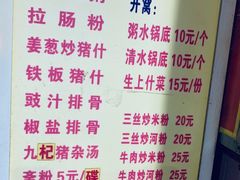 拉肠粉
姜葱炒猪什
铁板猪什
豉汁排骨
椒盐排骨
九杞猪杂汤
斋粉5元/碟
开窝:
粥水锅底10元/个
清水锅底10元/个
生上什菜15元/份
三丝炒米粉 20元
三丝炒河粉 20元
牛肉炒米粉 25元
牛肉炒河粉 25元